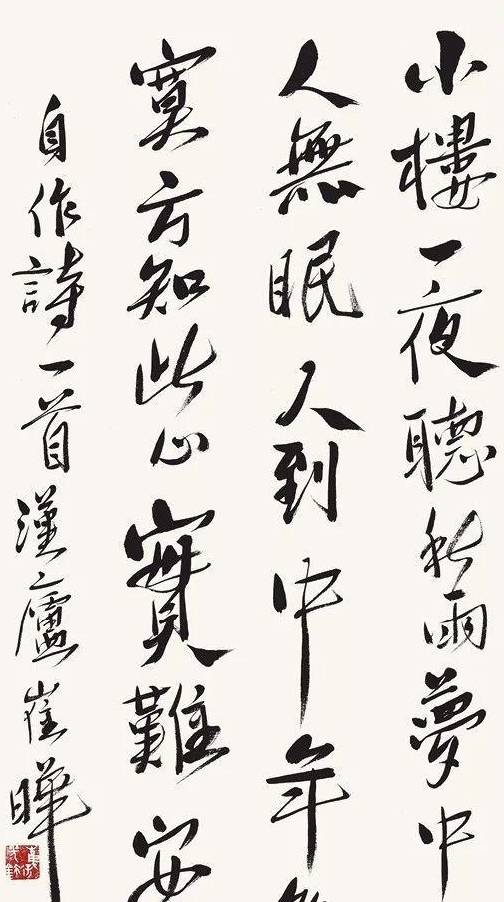 小樓一夜聽秋雨夢中
人無眠人到中年
寞方知此心實難安
自作詩一首漢廬崔曄